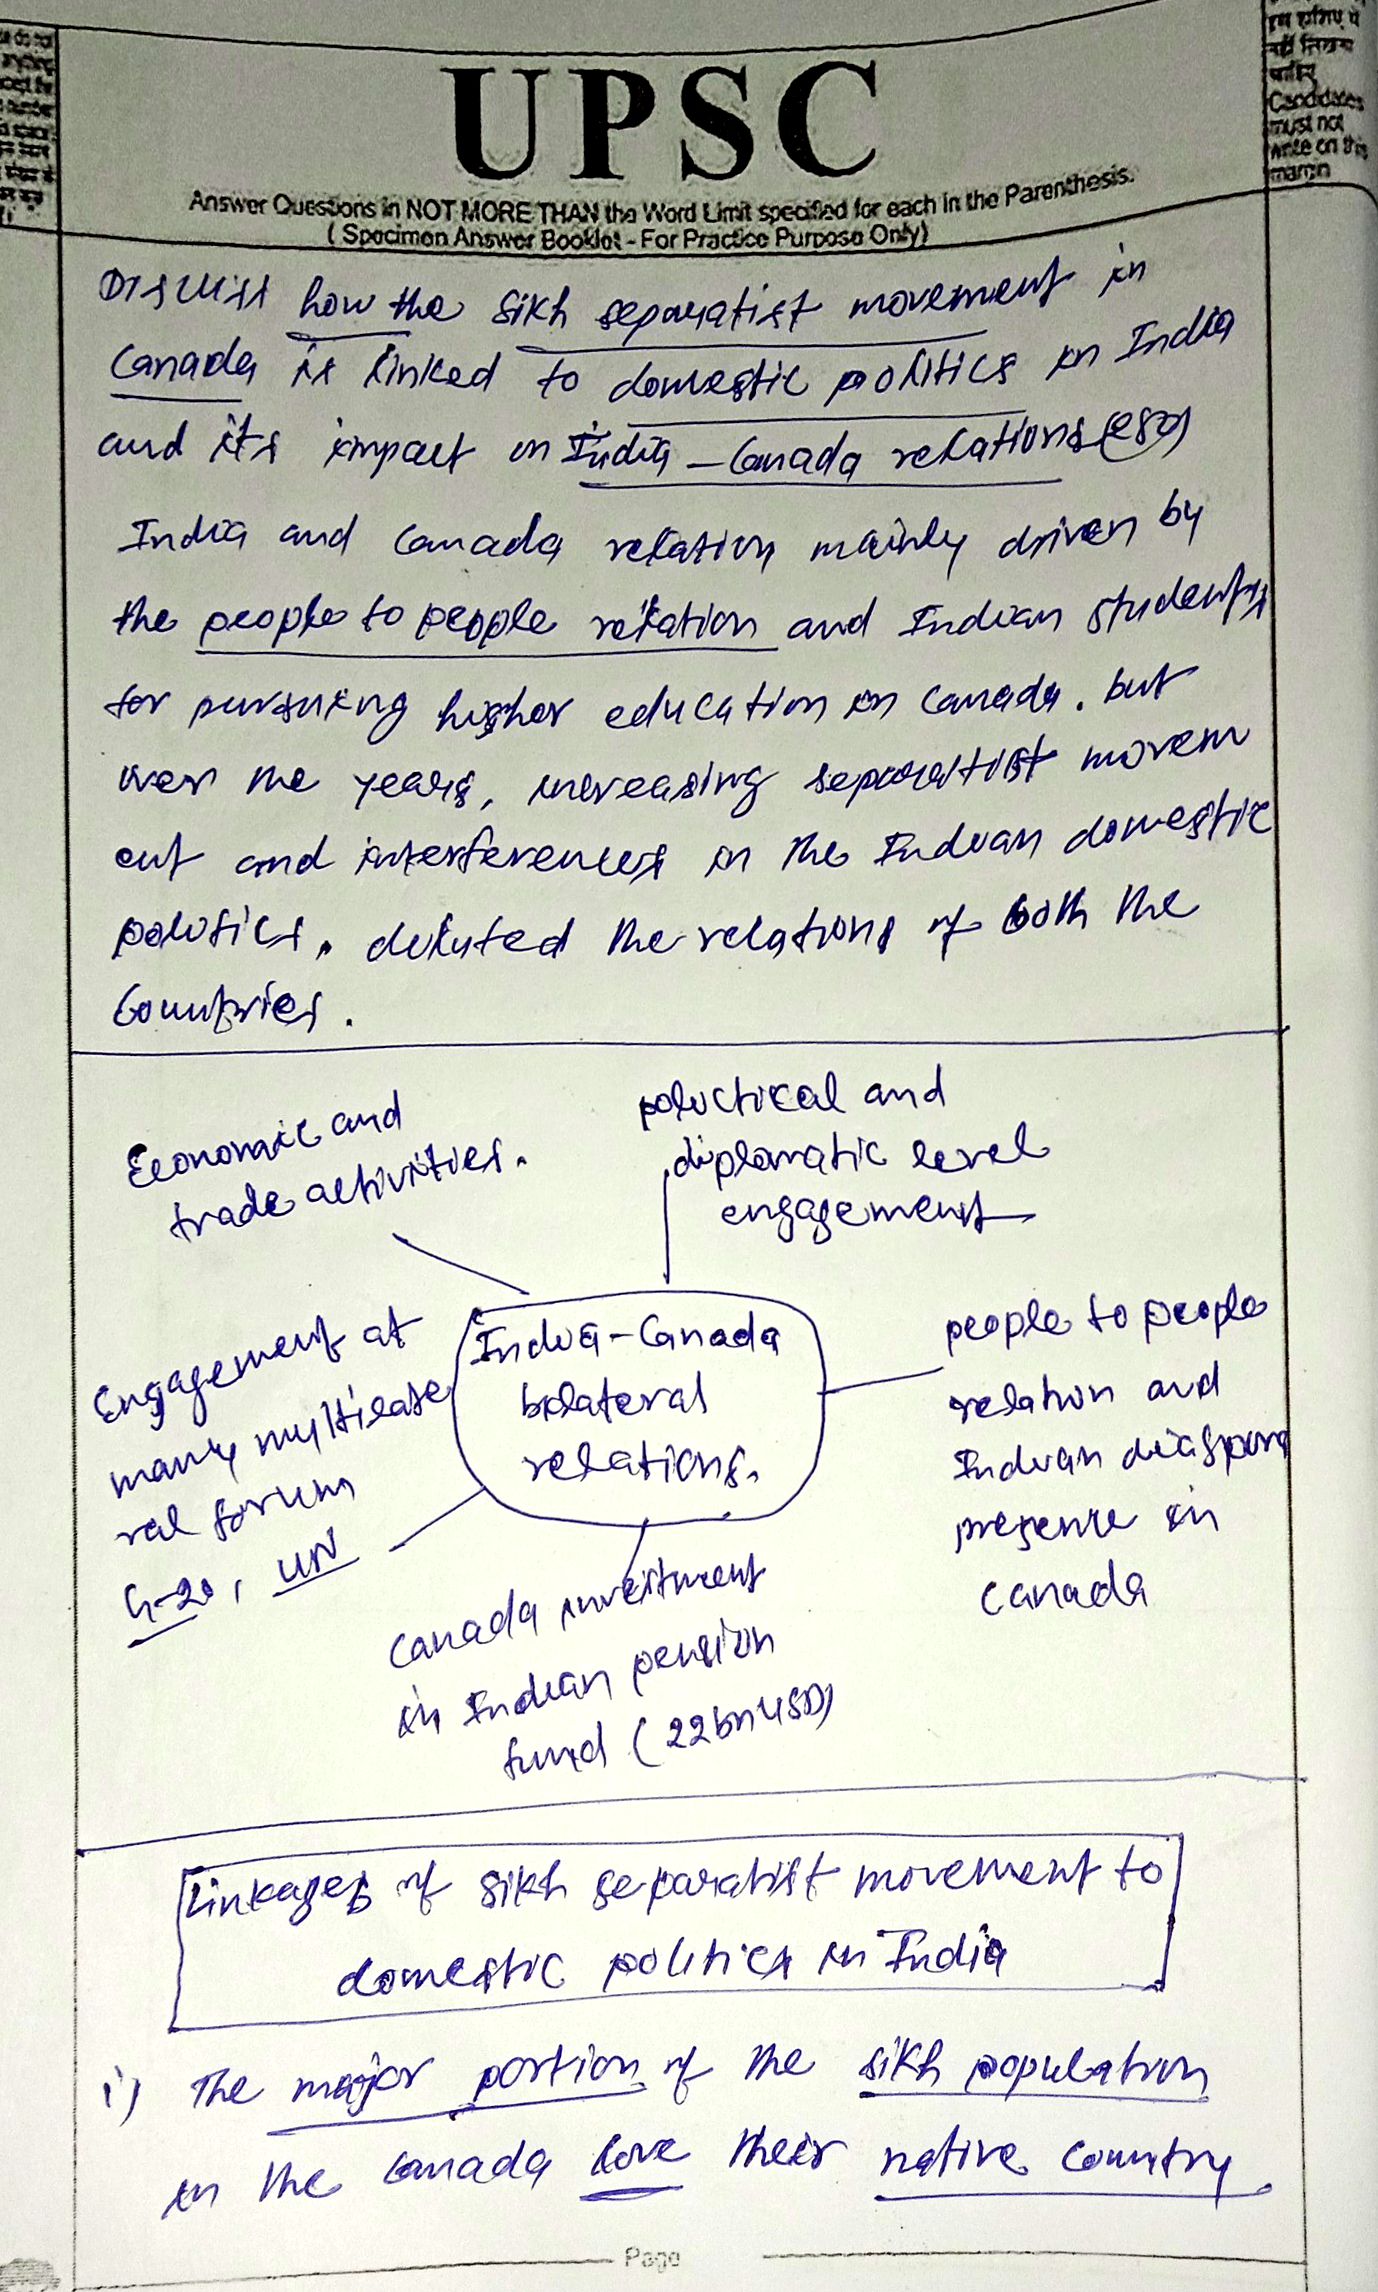 UPSC
Answer Questions in NOT MORE THAN the Word Limit specified for each in the Parenthesis.
( Specimen Answer Booklet - For Practice Purpose Only)
Candidates
must not
write on this
margin
Discuss how the Sikh separatist movement in
Canada is linked to domestic politics in India
and its impact on India - Canada relations
India and Canada relation mainly driven by
the people to people relation and Indian students
for pursuing higher education in Canada. but
over the years, increasing separatist movem
ent and interferences in the Indian domestic
politics, diluted the relations of both the
Countries.
Economic and
trade activities.
political and
diplomatic level
engagement
Engagement at
many multilate
ral forum
G-20, UN
India-Canada
bilateral
relations.
people to people
relation and
Indian diaspora
presence in
Canada
Canada investment
in Indian pension
fund (22bn USD)
Linkages of sikh separatist movement to
domestic politics in India
i) The major portion of the sikh population
in the Canada love their native country.
Page